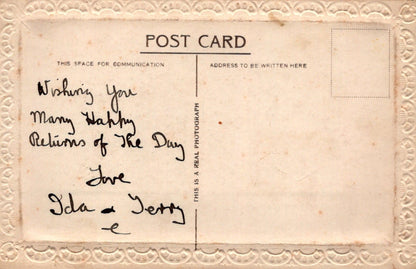 POST CARD
THIS SPACE FOR COMMUNICATION
ADDRESS TO BE WRITTEN HERE
Wishing You
Many Happy
Returns of The Day
Love
Ida & Terry
THIS IS A REAL PHOTOGRAPH